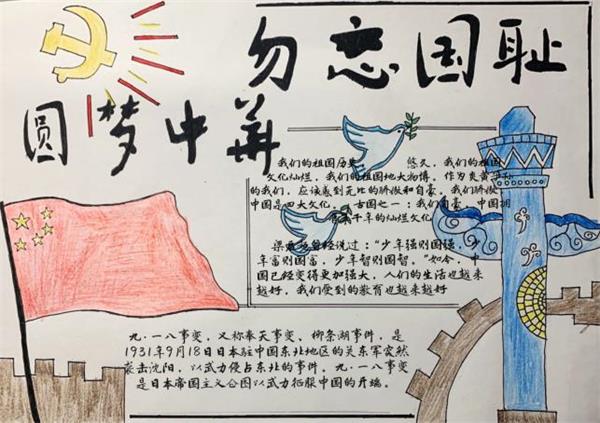 勿忘国耻
圆梦中华
我们的祖国历史 悠久，我们的祖国
文化灿烂，我们的祖国地大物博，作为炎黄子
的我们，应该感到无比的骄傲和自豪，我们骄傲，
中国是四大文化 古国之一；我们自豪，中国拥
千年的灿烂文化
曾经说过："少年强则国强，
年富则国富，少年智则国智。"如今，中
国已经变得更加强大，人们的生活也越来
越好，我们受到的教育也越来越好
九·一八事变，又称奉天事变、柳条湖事件，是
1931年9月18日日本驻中国东北地区的关东军突然
袭击沈阳，以武力侵占东北的事件。九·一八事变
是日本帝国主义企图以武力征服中国的开端。